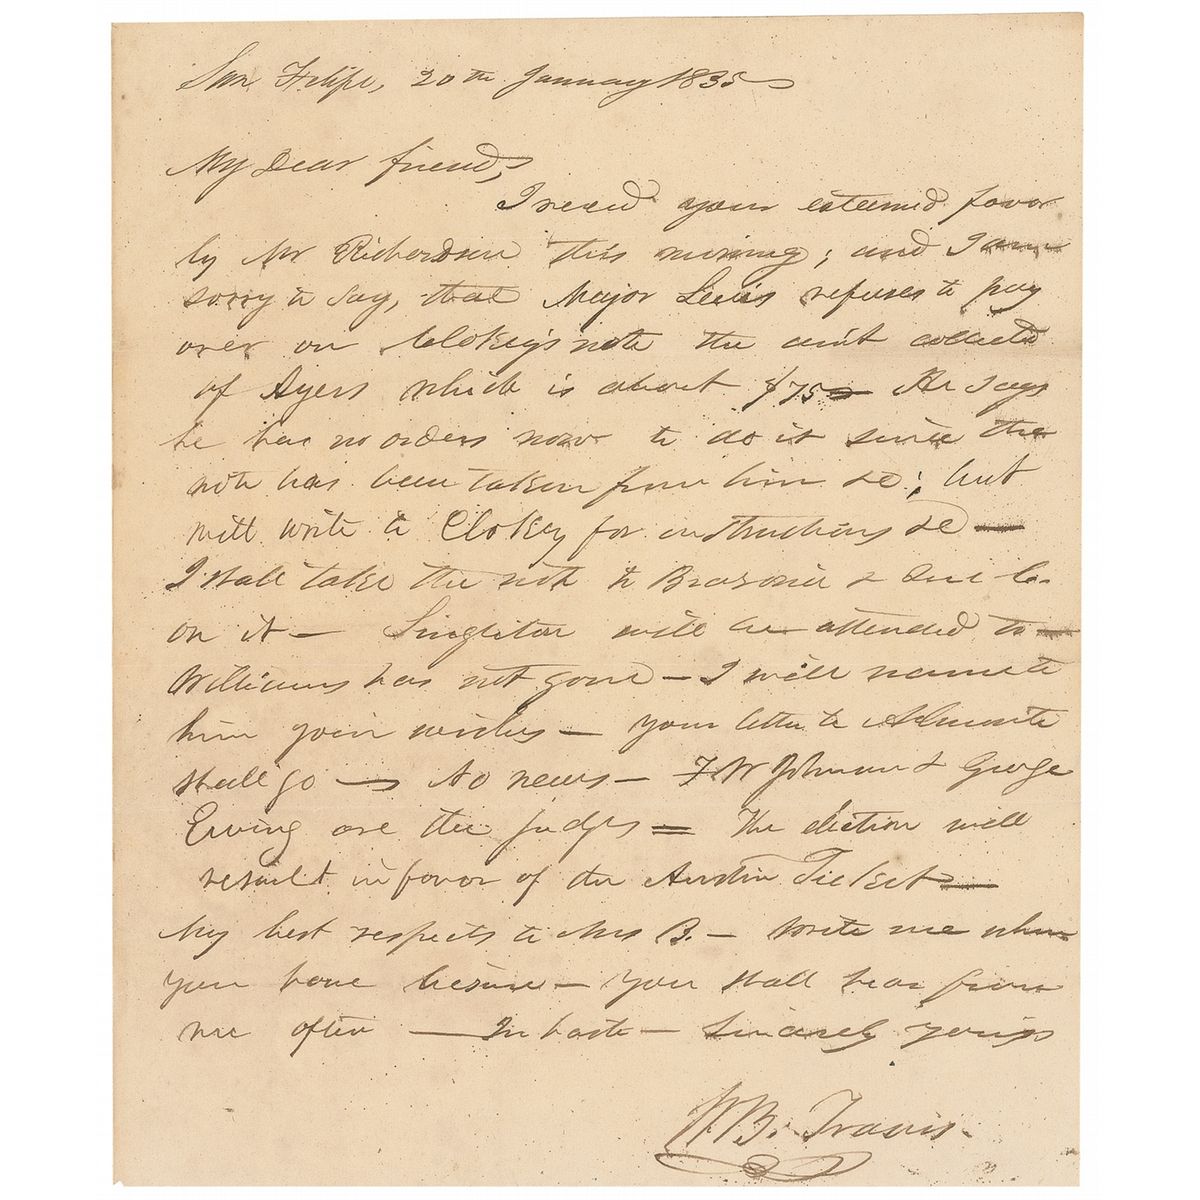 San Felipe, 20th January 1835
My Dear friend,
I recd your esteemed favor
by Mr Richardson this morning; and I am
sorry to say, that Major Lewis refuses to pay
over on Clokey's note the amt collected
of Ayers which is about $75 He says
he has no orders now to do it since the
note has been taken from him &c; but
will write to Clokey for instructions &c —
I shall take the note to Brazoria &
on it — Singleton will be attended to —
Williams has not gone — I will name to
him your wishes — your letter to Almonte
shall go — No news — F W Johnson & George
Ewing are the judges = The election will
result in favor of the Austin Ticket —
My best respects to Mrs B. — Write me when
you have leisure — You shall hear from
me often — In haste — Sincerely yours
W.B. Travis.